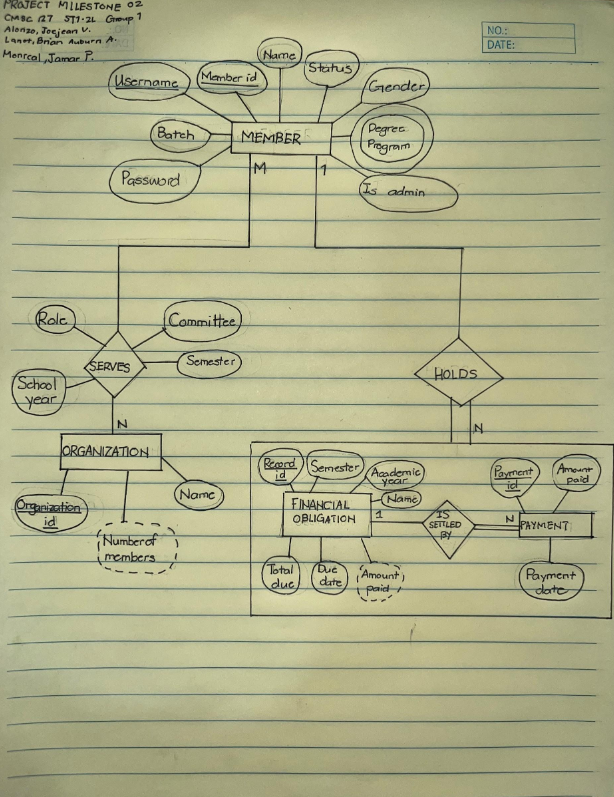 PROJECT MILESTONE 02
CMSC 127 ST1-2L Group 1
Alonzo, Joejean V.
Lanot, Brian Auburn A.
Monreal, Jamar P.
NO.:
DATE:
Name
Username
Member id
Status
Gender
Batch
MEMBER
Degree
Program
Password
Is admin
M
1
Role
Committee
SERVES
Semester
School
year
HOLDS
N
N
ORGANIZATION
Organization
id
Name
Number of
members
Record
id
Semester
Academic
year
Name
Payment
id
Amount
paid
FINANCIAL
OBLIGATION
1
IS
SETTLED
BY
N
PAYMENT
Total
due
Due
date
Amount
paid
Payment
date